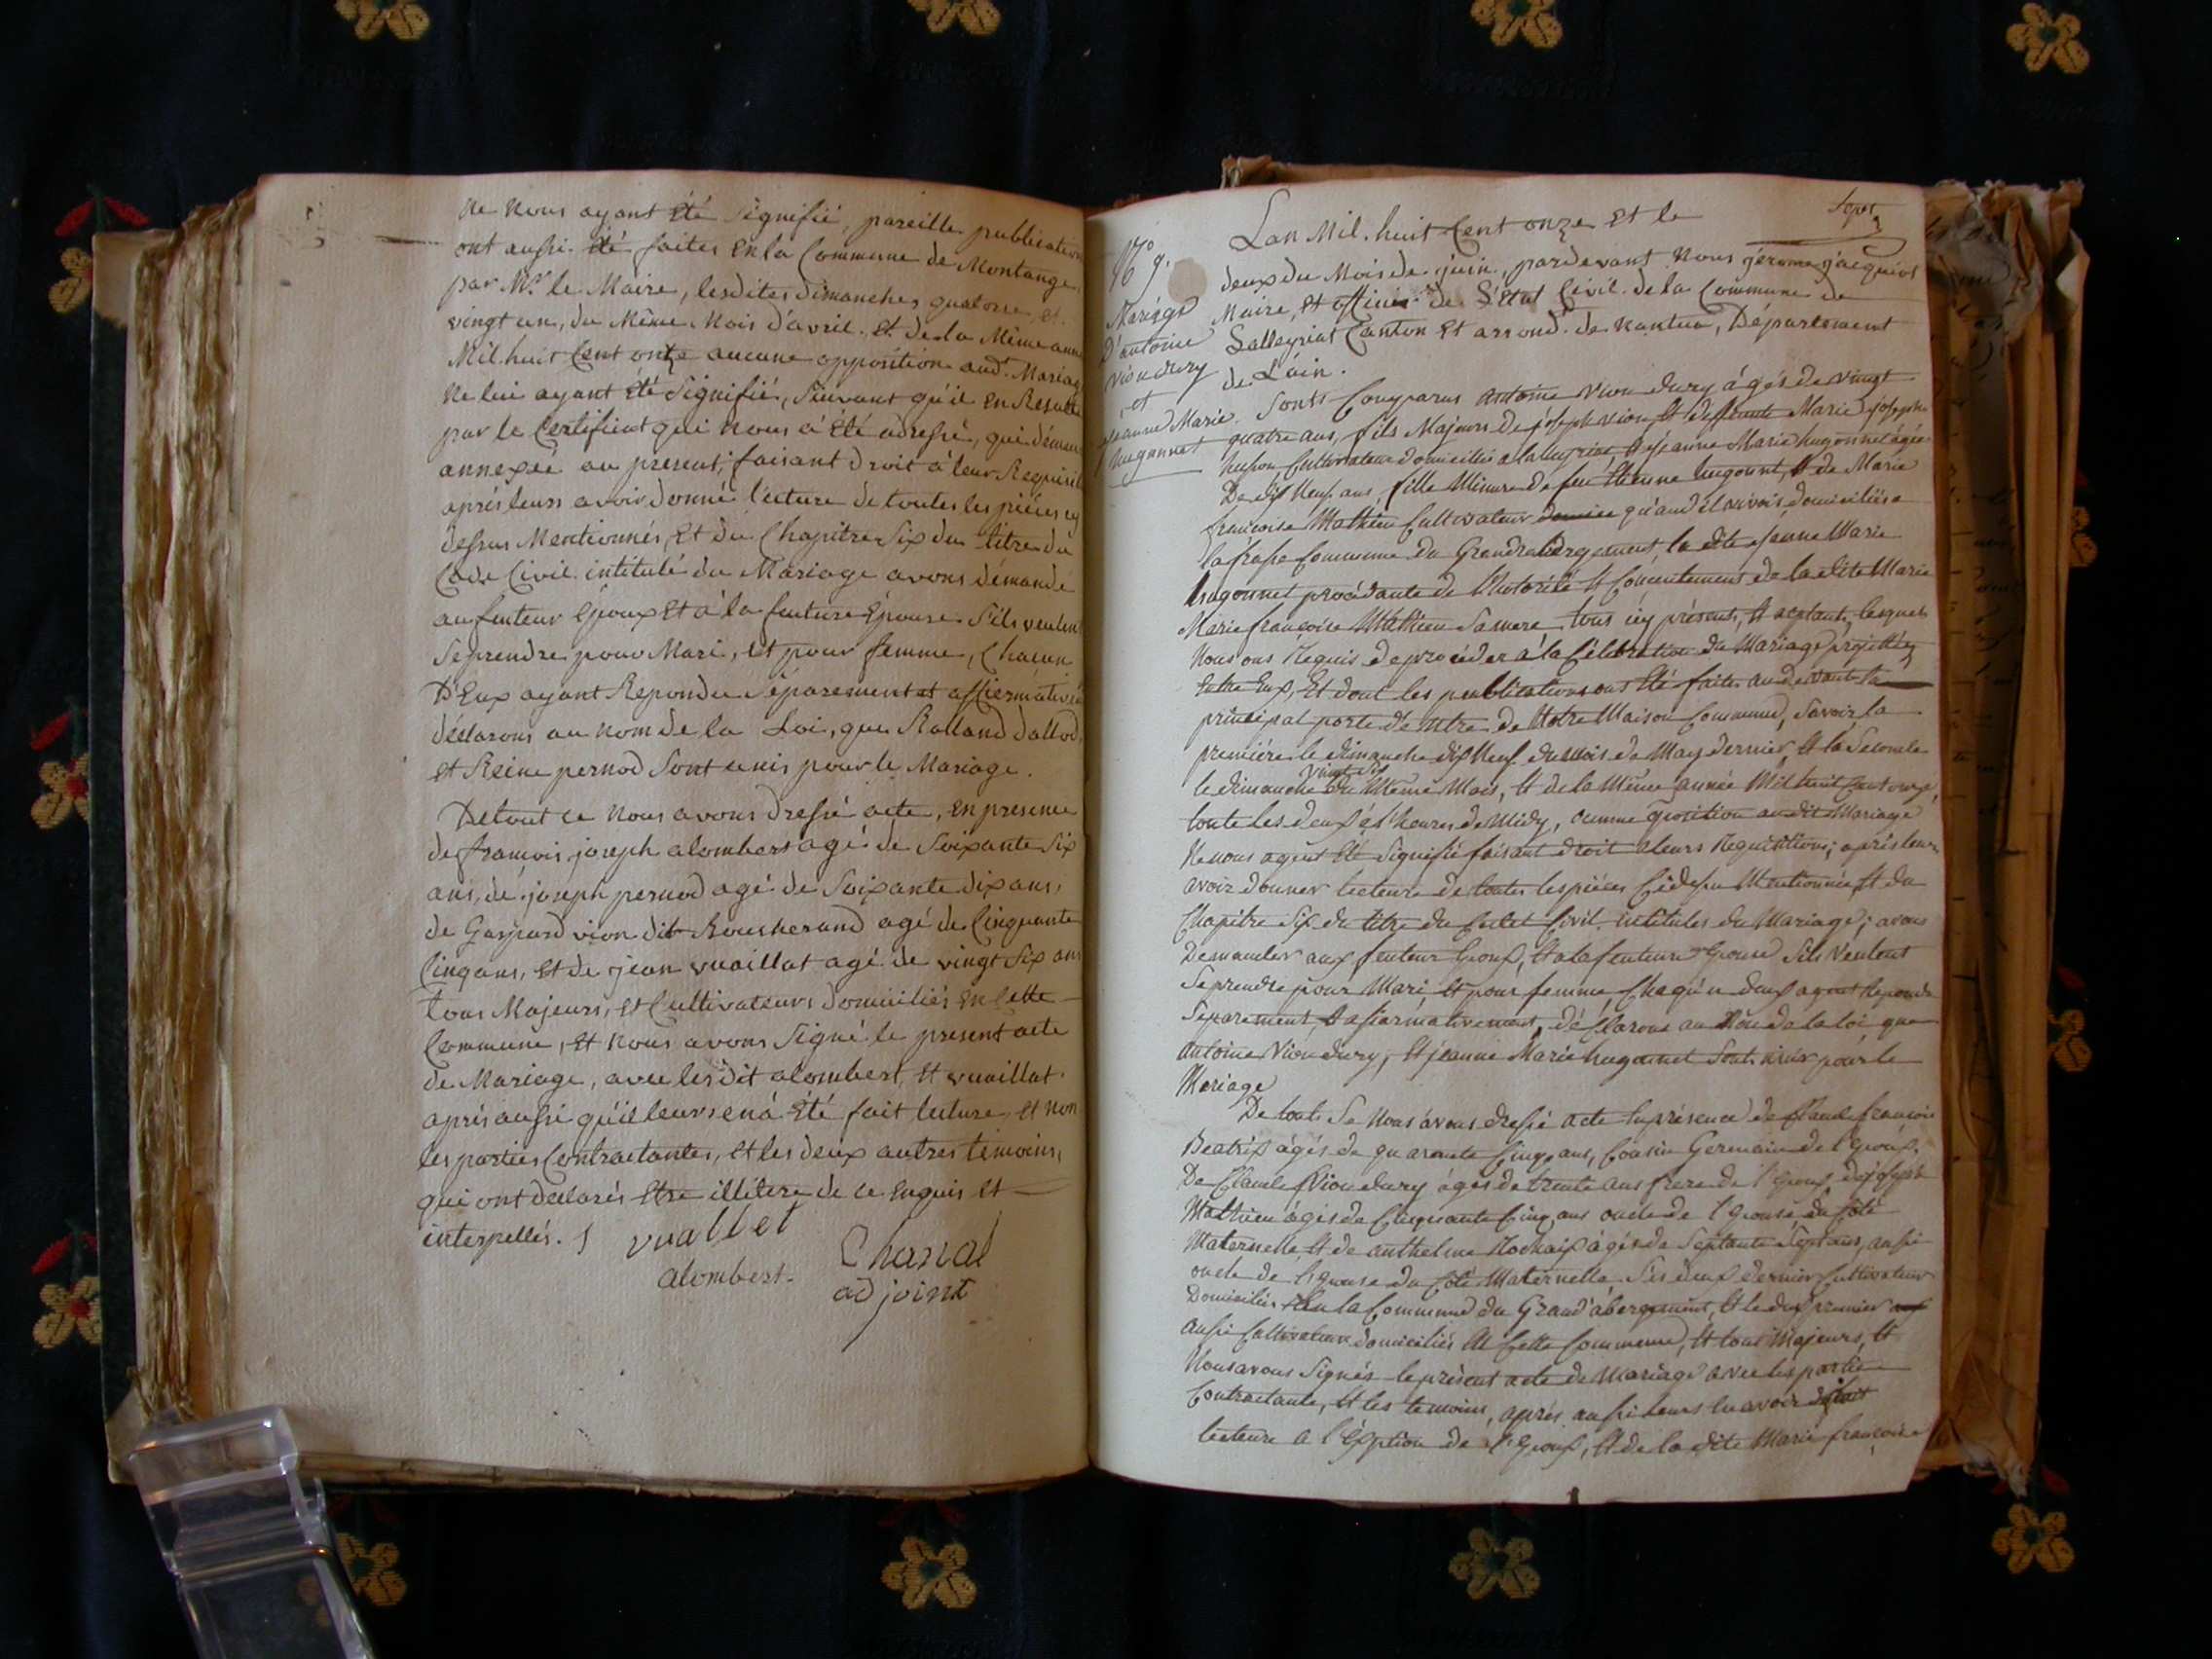 Ne nous ayant été signifié, pareille publication
ont aussi été faites en la Commune de Montange,
par Mr. le Maire, lesdites dimanches quatorse, et
vingt un, du Même Mois d'avril et de la Même anné
Mil huit Cent onze aucune opposition aud. Mariage
ne lui ayant été signifié, Suivant qu'il en Resulte
par le Certificat qui nous à été adressé, qui démeure
annexée au present, faisant droit à leur Requisit
aprés leurs avoir donné lecture de toutes les piéces cy
dessus Mentionnés, Et du Chapitre Six du titre du
Code Civil intitulé du Mariage avons démandé
au feuteur époux Et à la feuture épouse s'ils veulent
Se prendre pour Mari, et pour femme, Chacun
D'Eux ayant Repondu Séparement et affirmativem
déclarons au nom de la Loi, que Rolland dallod,
et Reine pernod Sont unis pour le Mariage.
De tout ce nous avons dressé acte, en presence
de francois joseph alombert agé de Soixante Six
ans, de joséph pernod agé de Soixante dix ans,
de Gaspard vion dit Rousserand agé de Cinquante
Cinq ans, et de jean vuaillat agé de vingt Six ans
tous Majeurs, et Cultivateurs domiciliés en Cette
Commune, et nous avons Signé le present acte
de Mariage, avec lesdit alombert, et vuaillat
aprés aussi qu'il leurs en à été fait lecture, et non
les parties Contractantes, et les deux autres témoins,
qui ont declarés Etre illitere de ce Enquis et
interpellés.
vuallet
alombert.
Chanal
adjoint
Sept
Lan Mil huit Cent onze et le
deux du Mois de juin, pardevant nous gérome jacquiot
Maire, et officier de L'état Civil de la Commune de
Lalleyriat Canton et arrond. de nantua, Département
de L'ain.
No 9.
Mariage
D'antoine
vion dury
et
jeanne Marie
hugonnet
Sont Comparus antoine vion dury âgés de vingt
quatre ans, fils Majeurs de joseph vion et deffeunte Marie joseph
Cultivateur domicilies a lalleyriat, et jeanne Marie hugonnet âgée
De dix Neuf ans, fille Mineure de feu Etienne hugonnet, et de Marie
francoise Mathieu Cultivateur qu'and il vivois domiciliés a
la frasse Commune du Grandabergement, la dite jeanne Marie
hugonnet procédante de l'hotorité et Concentement de la dite Marie
Marie francoise Mathieu Sa mere, tous icy présents, et aceptant, lesquels
Nous ons Requis de procéder à la Célébration du Mariage projetté
Entre Eux, Et dont les publications ons été faites au devant la
principal porte d'entre de Notre Maison Commune, Savoir la
premiére le dimanche dix Neuf du mois de May dernier, et la Seconde
le dimanche vingt Six du Même Mois, et de la Même année Mil huit Cent onze,
toute les deux à l'heures de Midy, aucune oposition audit Mariage
Ne nous ayent été Signifié faisant droit a leurs Requisitions; aprés leurs
avoir donner lecteure de toutes les piéces Cidessu Mentionnée, et du
Chapitre Six du titre du Codet Civil intitules du Mariage; avons
Demander aux feuteur Epoux, et a la feuteure Epouse Sils Veulent
Se prendre pour Mari, et pour femme, Chaqu'n deux ayent Repondu
Séparement, et afiarmativement, déClarons au Nom de la loi que
antoine Vion dury, et jeanne Marie hugonnet Sont unis pour le
Mariage
De tout Se Nous avons dressé acte En présence de Claude francois
Beatrix âgés de quarante Cinq ans, Cousin Germain de l'Epoux,
De Claude Vion dury âgés de trente ans frere de l'Epoux, de joseph
Mathieu âgés de Cinquante Cinq ans oncle de l'Epouse du Coté
Maternelle, et de anthelme âgés de Septante Sept ans, aussi
oncle de l'Epouse du Coté Maternelle. Ses deux dernier Cultivateur
Domicilies En la Commune du Grand'abergement, et le deux premier
aussi Cultivateur domiciliés de Cette Commune, et tous Majeurs, et
Nous avons Signés le présent acte de Mariage avec les partie
Contractante, et les temoins, aprés aussi leurs en avoir fait
lecteure a l'éxption de l'Epoux, et de la dite Marie francoise